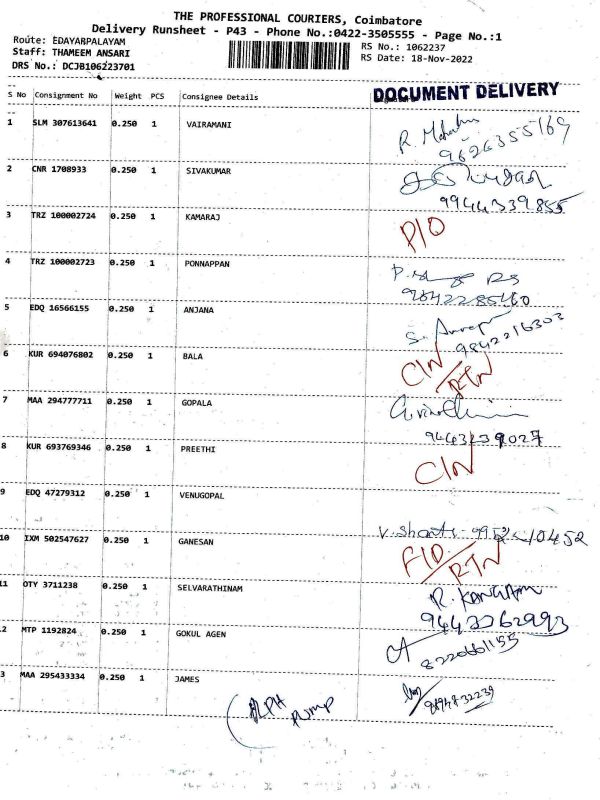 THE PROFESSIONAL COURIERS, Coimbatore
Delivery Runsheet - P43 - Phone No.:0422-3505555 - Page No.:1
Route: EDAYARPALAYAM
Staff: THAMEEM ANSARI
DRS No.: DCJB106223701
RS No.: 1062237
RS Date: 18-Nov-2022
S No Consignment No Weight PCS Consignee Details
DOCUMENT DELIVERY
1 SLM 307613641 0.250 1 VAIRAMANI
9626355169
2 CNR 1708933 0.250 1 SIVAKUMAR
9944339855
3 TRZ 100002724 0.250 1 KAMARAJ
P/O
4 TRZ 100002723 0.250 1 PONNAPPAN
9842285460
5 EDQ 16566155 0.250 1 ANJANA
9842216303
6 KUR 694076802 0.250 1 BALA
C/N
RTN
7 MAA 294777711 0.250 1 GOPALA
8 KUR 693769346 0.250 1 PREETHI
C/N
9 EDQ 47279312 0.250 1 VENUGOPAL
V. Shanti
10 IXM 502547627 0.250 1 GANESAN
RTN
11 OTY 3711238 0.250 1 SELVARATHINAM
2 MTP 1192824 0.250 1 GOKUL AGEN
8220661155
3 MAA 295433334 0.250 1 JAMES
ALPH
PUMP